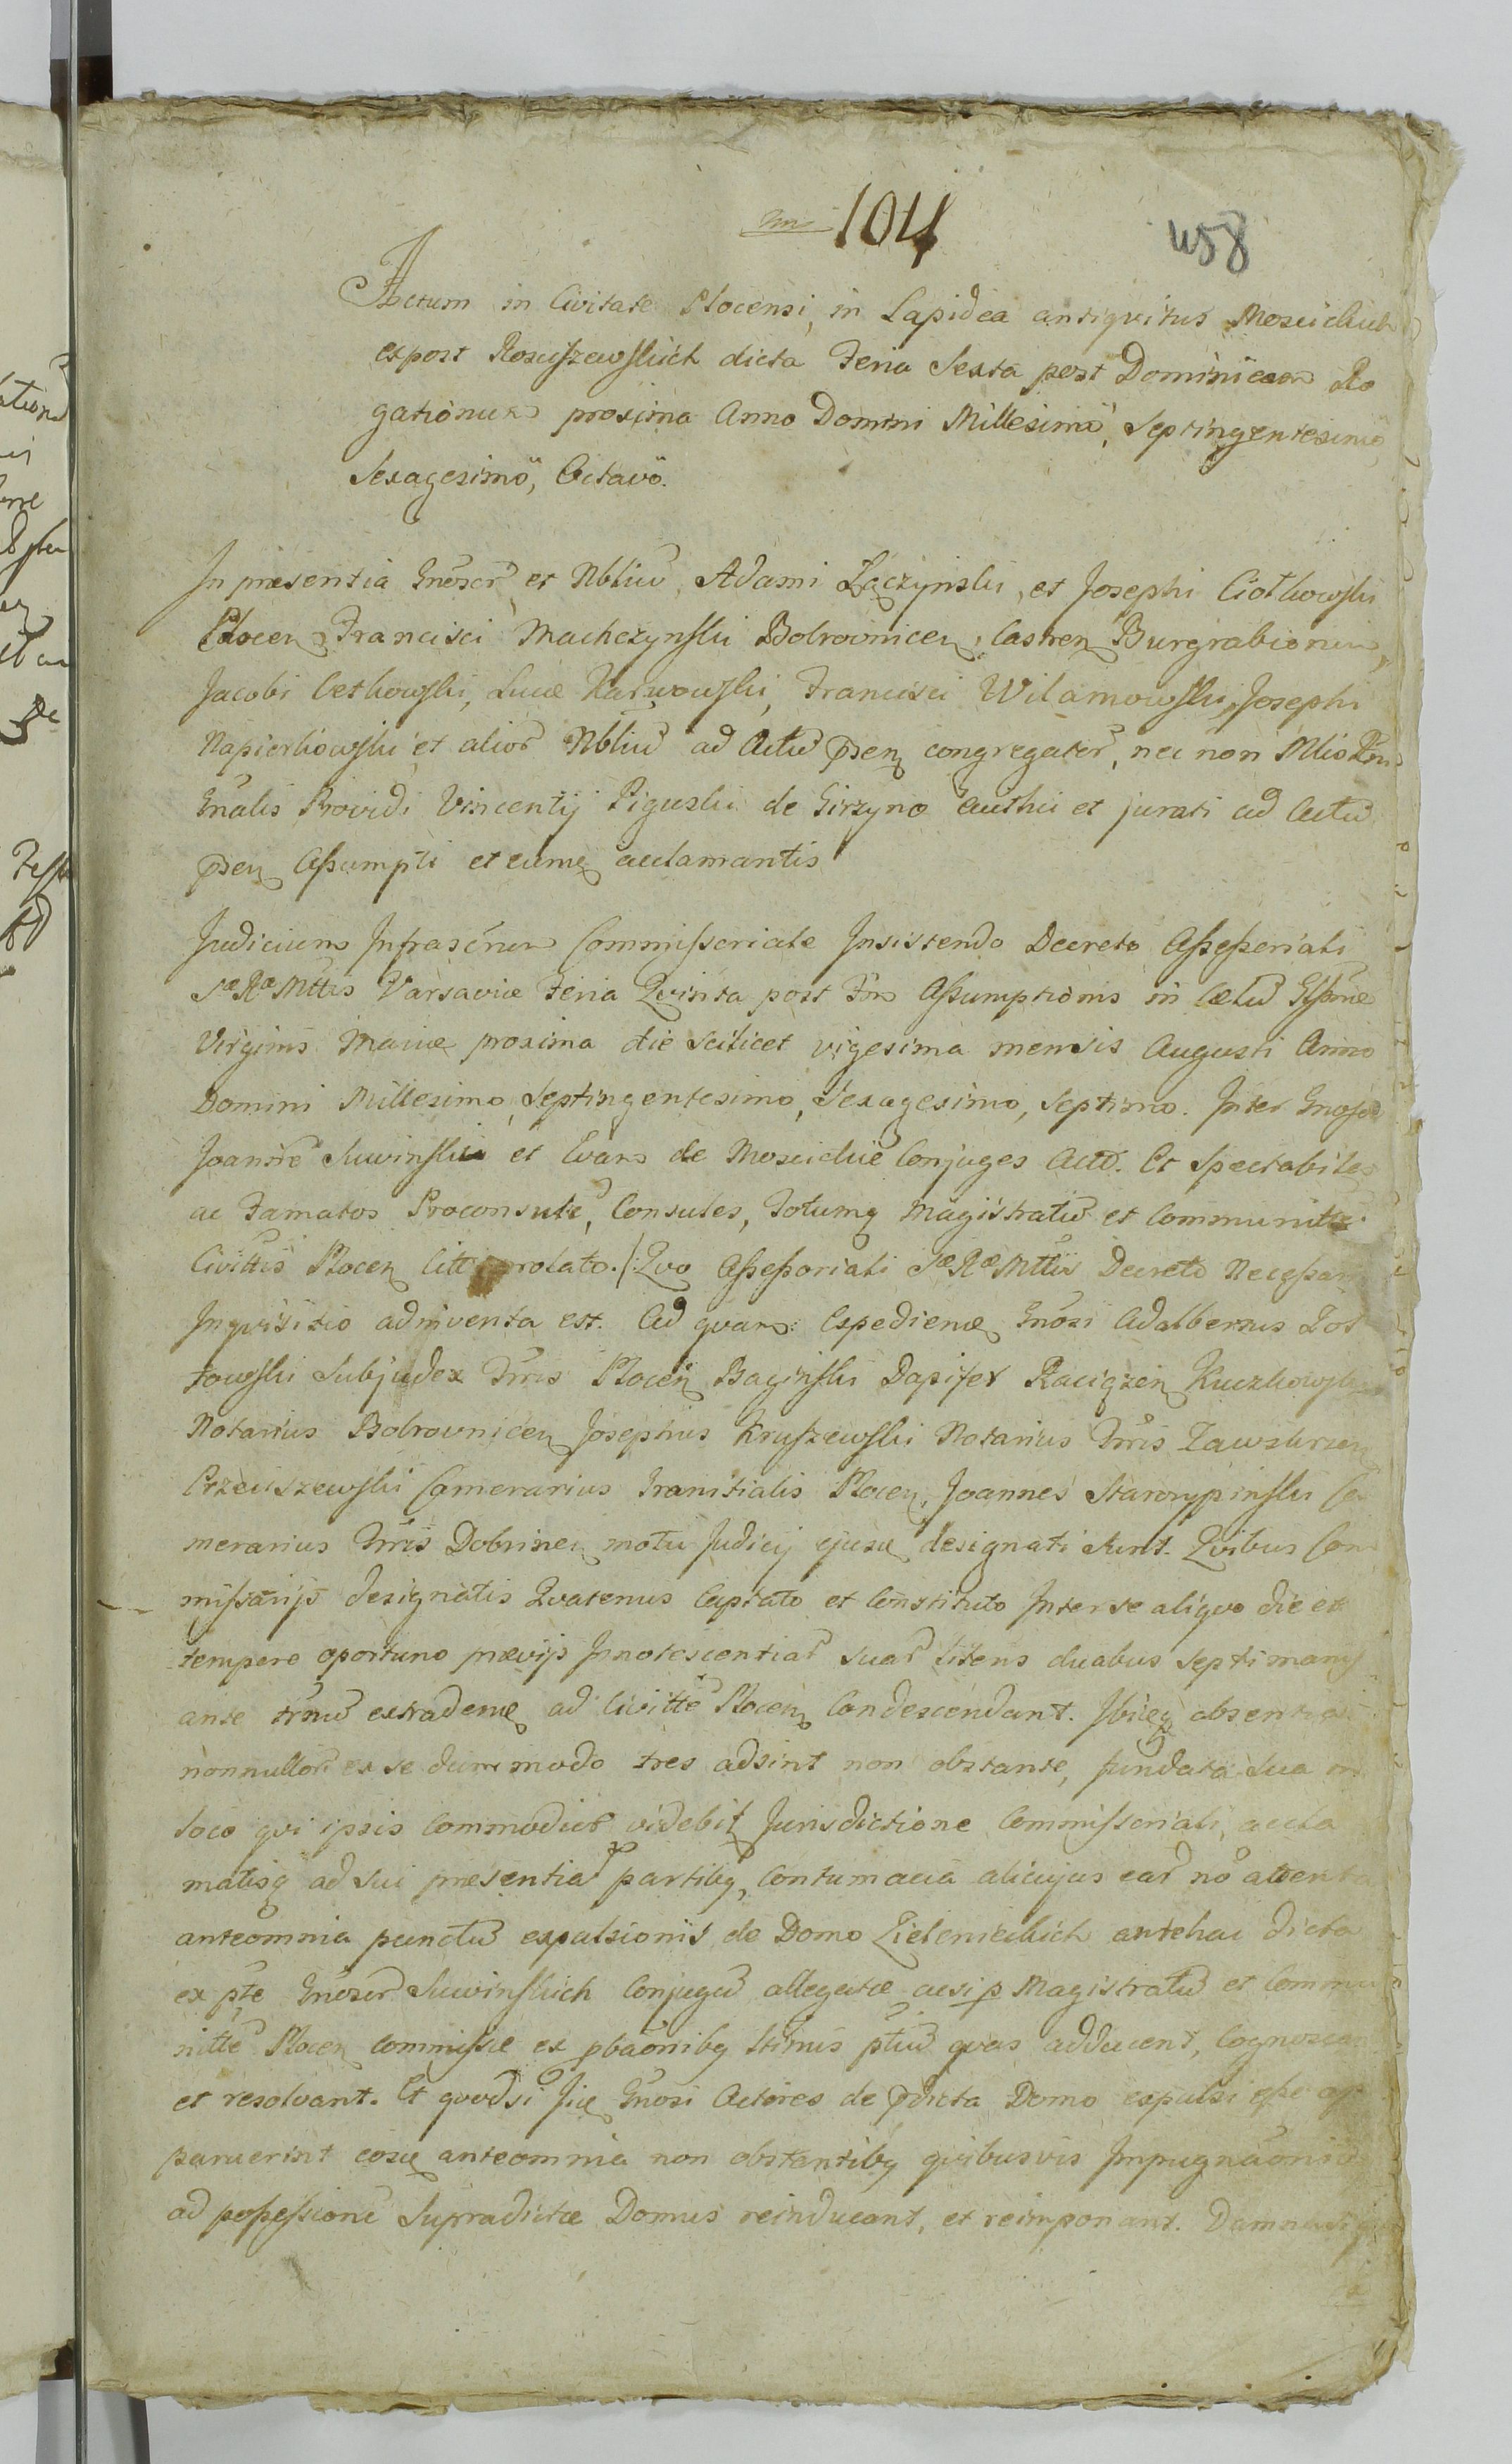 104
458
Actum in Civitate Plocensi, in Lapidea antiqvitus Moscickich
expost Rosciszewskich dicta Feria Sexta post Dominicam Ro
gationum proxima Anno Domini Millesimo, Septingentesimo
Sexagesimo, Octavo.
In præsentia Gnẽsor̃ et Nbliũ, Adami Łączynski, et Josephi Ciołkowski
Plocen, Francisci Machczynski Bobrovnicen, Castren Burgrabiorum,
Jacobi Cetkowski, Lucæ Karwowski, Francisci Wilamowski, Josephi
Napierkowski et alior̃ Nbliũ ad Actũ p̃sen congregator̃, nec non Mlis
Gñalis Providi Vincentij Piguski de Girzyno Authci et jurati ad Actũ
p̃sen Assumpti et eumq acclamantis
Judicium Infrascrium Commissoriale Insistendo Decreto Assessoriali
SæRæMttis Varsaviæ Feria Qvinta post Fm Assumptionis in Cœlũ Glssmæ
Virginis Mariæ proxima die scilicet vigesima mensis Augusti Anno
Domini Millesimo, Septingentesimo, Sexagesimo, Septimo. Inter Gnoso
Joannẽ Suwinski et Evam de Moscickie Conjuges Act̃. Et Spectabiles
ac Famatos Proconsulẽ, Consules, Totumq Magistratũ et Communitt̃
Civittis Plocen Citt prolato. /: Qvo Assessoriali SæRæMttis Decreto Necessar
Inqvisitio adinventa est. Ad qvam Expedienđ Gnosi Adalbertus Zol
towski Subjudex Tr̃ris Plocen Baginski Dapifer Raciążen Kuczkowski
Notarius Bobrovnicen Josephus Kruszewski Notarius Tr̃ris Zawskrzen
Przeciszewski Camerarius Granitialis Plocen, Joannes Starorypinski Ca
merarius Tr̃ris Dobrinen motu Judicij ejusđ designati sunt. Qvibus Com
missarijs designatis Qvatenus Captato et Constituto Inter se aliqvo die et
tempore oportuno prævijs Innotescentiar̃ suar̃ litteris duabus septimanis
ante tr̃mũ extradenđ ad Civittẽ Plocen Condescendant. Ibiq absentia
nonnullor̃ ex se dummodo tres adsint non obstante, fundata sua in
loco qvi ipsis commodior videbit Jurisdictione Commissoriali, accla
matisq ad sui præsentiã partibq, Contumacia alicujus ear̃ nõ attenta
anteomnia punctũ expulsionis de Domo Zieleniecklich antehac dicta
ex pt̃e Gnosor̃ Suwinskich Conjugũ allegatæ acsi p Magistratũ et Commu
nittẽ Plocen commissæ ex pbãonibq strinis ptiũ qvas adducent, Cognoscan
et resolvant. Et qvodsi sic Gnosi Actores de p̃dicta Domo expulsi esse ap
paruerint eosđ anteomnia non obstantibq qvibusvis Impugnãonibq
ad possessionẽ supradictæ Domus reinducant, et reimponant. Damna